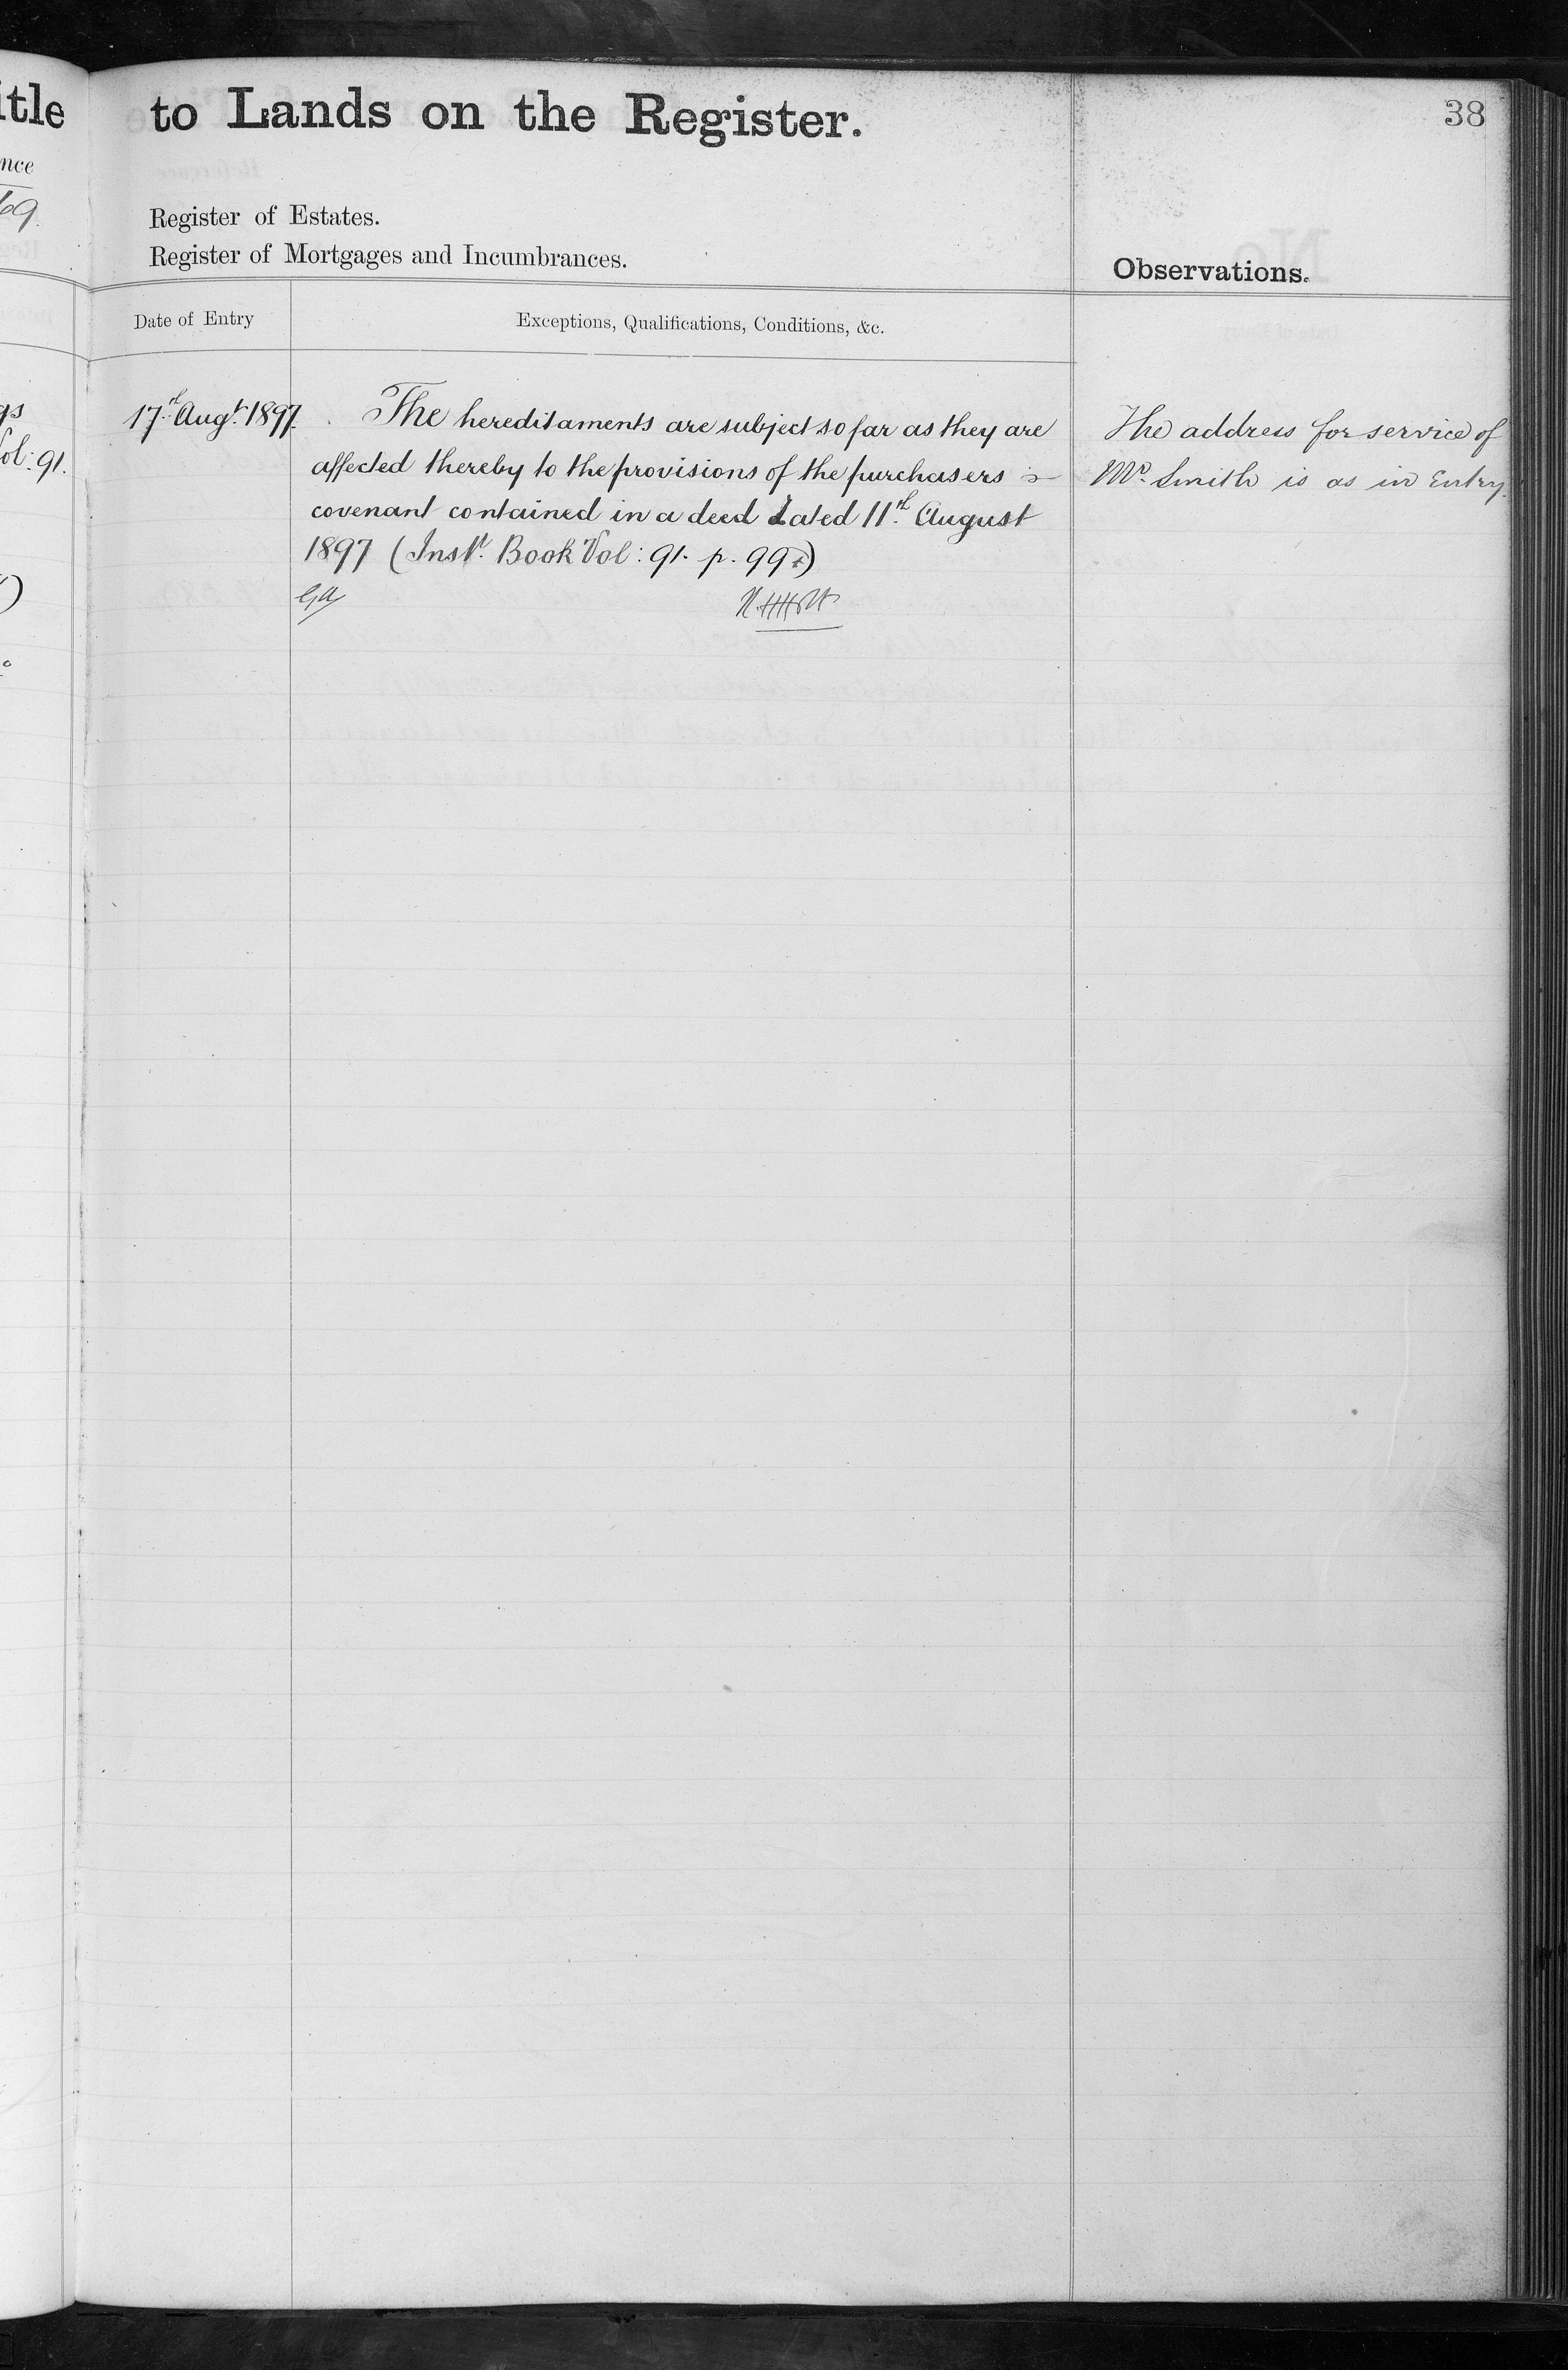 itle
to Lands on the Register.
38
nce
69.
Register of Estates.
Register of Mortgages and Incumbrances.
Observations.
Date of Entry
Exceptions, Qualifications, Conditions, &c.
gs
Vol: 91.
17th Augt. 1897.
The hereditaments are subject so far as they are
affected thereby to the provisions of the purchasers
covenant contained in a deed dated 11th August
1897 (Inst. Book Vol: 91. p. 99)
The address for service of
Mr. Smith is as in Entry.